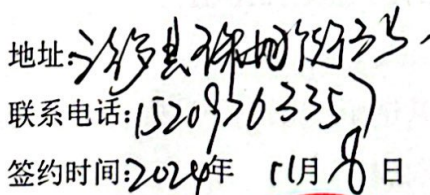 地址: 县 街3号
联系电话:15209763357
签约时间:2024年 11月 8日